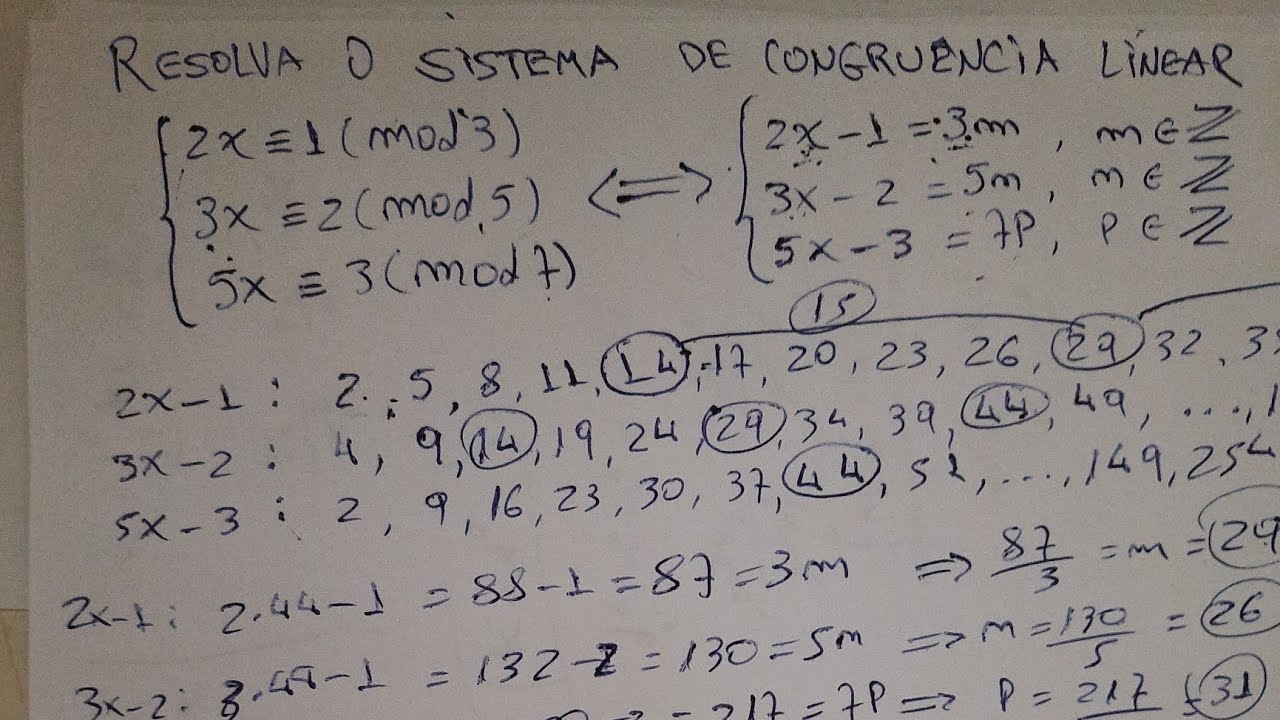 RESOLVA O SISTEMA DE CONGRUÊNCIA LINEAR
2x ≡ 1 (mod 3)
3x ≡ 2 (mod 5)
5x ≡ 3 (mod 7)
<=>
2x - 1 = 3m, m ∈ ℤ
3x - 2 = 5m, m ∈ ℤ
5x - 3 = 7P, P ∈ ℤ
15
2x-1 : 2, 5, 8, 11, 14, 17, 20, 23, 26, 29, 32,
3x-2 : 4, 9, 14, 19, 24, 29, 34, 39, 44, 49, ...,
5x-3 : 2, 9, 16, 23, 30, 37, 44, 51, ..., 149, 254
2x-1 : 2.44-1 = 88-1 = 87 = 3m => 87/3 = m = 29
3x-2 : 3.44-1 = 132-2 = 130 = 5m => m = 130/5 = 26
= 217 = 7P => P = 217 = 31